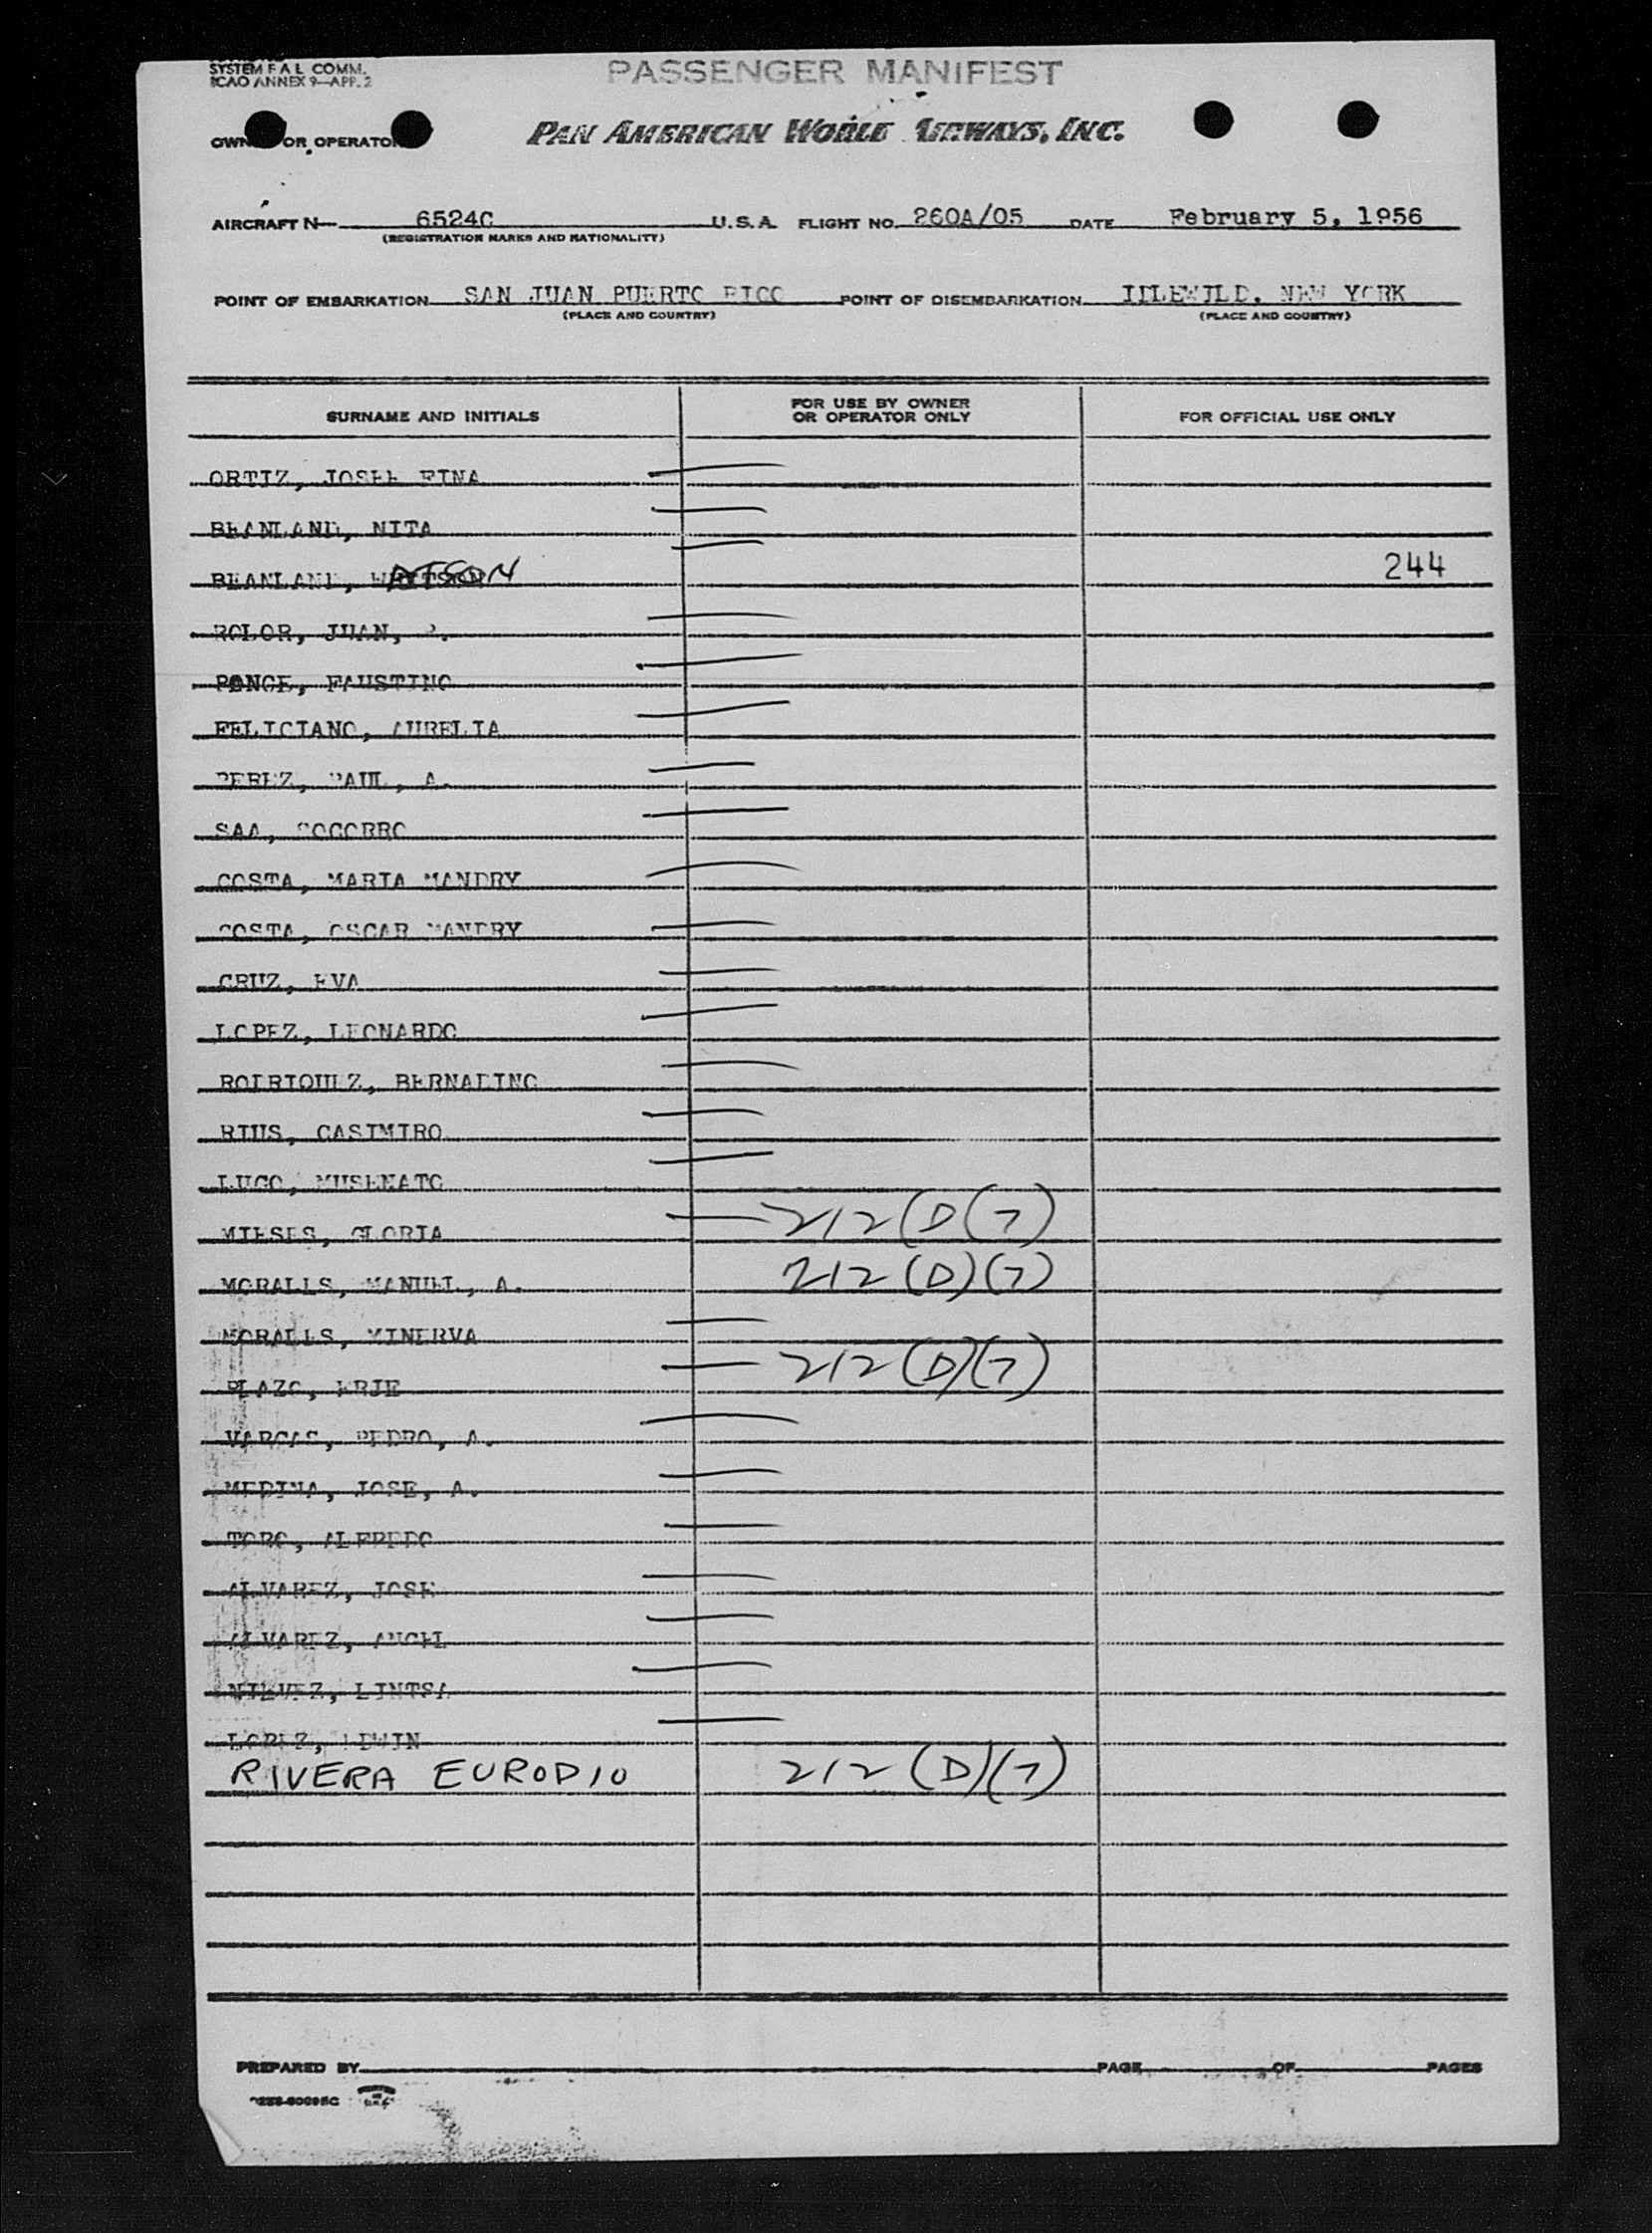 SYSTEM F A L COMM.
ICAO ANNEX 9—APP. 2
PASSENGER MANIFEST
OWNER OR OPERATOR PAN AMERICAN WORLD AIRWAYS, INC.
AIRCRAFT N— 6524C U.S.A. FLIGHT NO. 260A/05 DATE February 5, 1956
(REGISTRATION MARKS AND NATIONALITY)
POINT OF EMBARKATION SAN JUAN PUERTO RICO POINT OF DISEMBARKATION IDLEWILD, NEW YORK
(PLACE AND COUNTRY) (PLACE AND COUNTRY)
SURNAME AND INITIALS FOR USE BY OWNER OR OPERATOR ONLY FOR OFFICIAL USE ONLY
ORTIZ, JOSEFINA
BEANLAND, NITA
BEANLAND, WATSON 244
ROLOR, JUAN, P.
PONCE, FAUSTINO
FELICIANO, AURELIA
PEREZ, RAUL, A.
SAA, SOCORRO
COSTA, MARIA MANDRY
COSTA, OSCAR MANDRY
CRUZ, EVA
LOPEZ, LEONARDO
RODRIQUEZ, BERNADINO
RIUS, CASIMIRO
LUGO, MUSENATO
MIESES, GLORIA 212 (D(7)
MORALES, MANUEL, A. 212 (D)(7)
MORALES, MINERVA
PLAZO, ERJE 212 (D)(7)
VARGAS, PEDRO, A.
MEDINA, JOSE, A.
TORO, ALFREDO
ALVAREZ, JOSE
ALVAREZ, ANGEL
NIEVEZ, LINTSA
LOPEZ, EDWIN
RIVERA EURODIO 212 (D)(7)
PREPARED BY PAGE OF PAGES